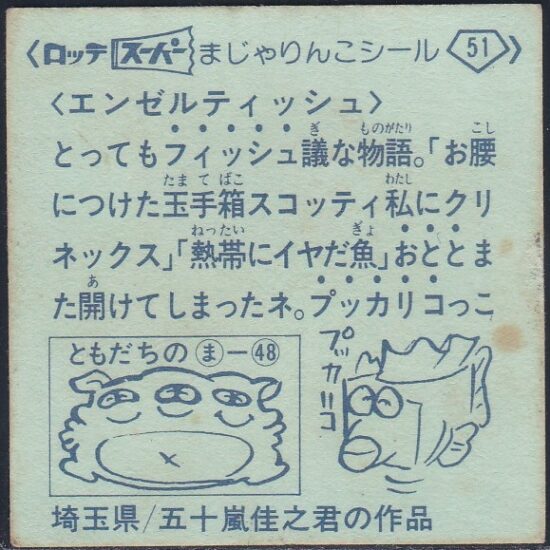 〈ロッテスーパーまじゃりんこシール 51〉
〈エンゼルティッシュ〉
とってもフィッシュ議な物語。「お腰
につけた玉手箱スコッティ私にクリ
ネックス」「熱帯にイヤだ魚」おととま
た開けてしまったネ。プッカリコっこ
ぎ ものがたり こし
たまてばこ わたし
ねったい ぎょ
あ
ともだちの ま－48
プッカリコ
埼玉県/五十嵐佳之君の作品